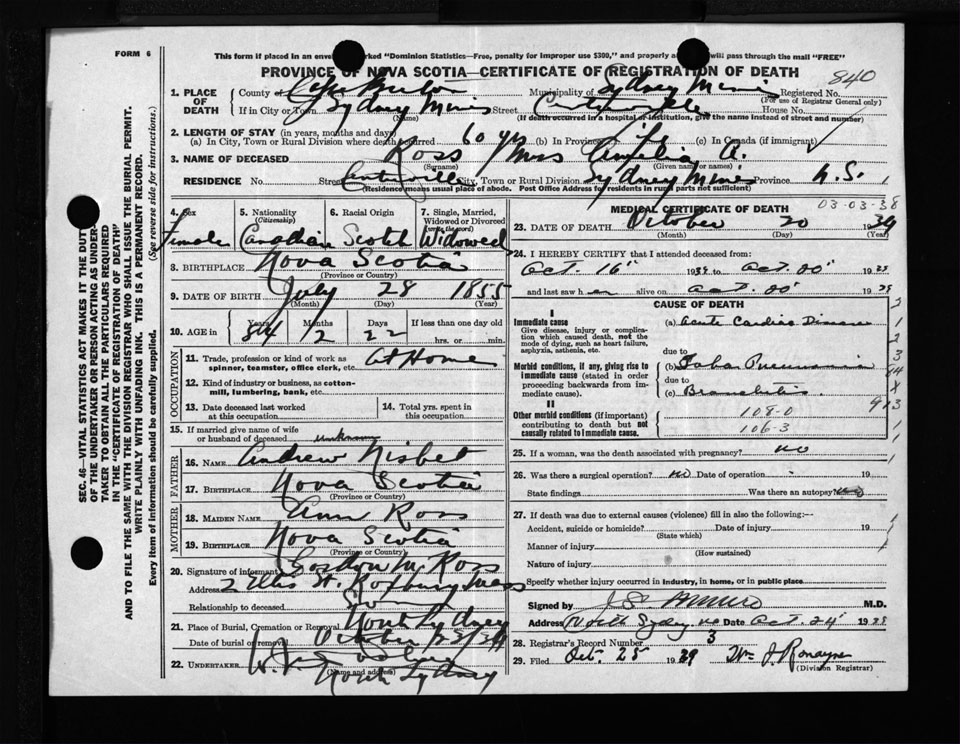 FORM 6
This form if placed in an enve rked "Dominion Statistics—Free, penalty for improper use $300," and properly a will pass through the mail "FREE"
PROVINCE OF NOVA SCOTIA—CERTIFICATE OF REGISTRATION OF DEATH
840
1. PLACE OF DEATH County of Cape Breton Municipality of Sydney Mines Registered No.
(For use of Registrar General only)
If in City or Town Sydney Mines Street Centreville House No.
(Name) (If death occurred in a hospital or institution, give the name instead of street and number)
2. LENGTH OF STAY (in years, months and days)
(a) In City, Town or Rural Division where death occurred 60 yrs (b) In Province Life (c) In Canada (if immigrant)
3. NAME OF DECEASED Ross Mrs A.
(Surname) (Given name or names)
RESIDENCE No. Street Centreville City, Town or Rural Division Sydney Mines Province N.S.
(Residence means usual place of abode. Post Office Address for residents in rural parts not sufficient)
4. Sex Female
5. Nationality (Citizenship) Canadian
6. Racial Origin Scotch
7. Single, Married, Widowed or Divorced (write the word) Widowed
8. BIRTHPLACE Nova Scotia
(Province or Country)
9. DATE OF BIRTH July 28 1855
(Month) (Day) (Year)
10. AGE in Years 84 Months 2 Days 22 If less than one day old
hrs. or min.
OCCUPATION
11. Trade, profession or kind of work as spinner, teamster, office clerk, etc. At Home
12. Kind of industry or business, as cotton-mill, lumbering, bank, etc.
13. Date deceased last worked at this occupation
14. Total yrs. spent in this occupation
15. If married give name of wife or husband of deceased unknown
FATHER
16. NAME Andrew Nisbet
17. BIRTHPLACE Nova Scotia
(Province or Country)
MOTHER
18. MAIDEN NAME Ann Ross
19. BIRTHPLACE Nova Scotia
(Province or Country)
20. Signature of informant Gordon M. Ross
Address 2 Ellis St. Roxbury Mass
Relationship to deceased Son
21. Place of Burial, Cremation or Removal North Sydney
Date of burial or removal October 23/39
22. UNDERTAKER W.
North Sydney
(Name and address)
MEDICAL CERTIFICATE OF DEATH 03-03-38
23. DATE OF DEATH October 20 1939
(Month) (Day) (Year)
24. I HEREBY CERTIFY that I attended deceased from:
Oct. 16" 1939 to Oct. 20" 1939
and last saw h er alive on Oct. 20" 1939
CAUSE OF DEATH
I
Immediate cause (a) Acute Cardiac Disease
Give disease, injury or complication which caused death, not the mode of dying, such as heart failure, asphyxia, asthenia, etc.
due to
Morbid conditions, if any, giving rise to immediate cause (stated in order proceeding backwards from immediate cause). (b) Lobar Pneumonia
due to
(c) Bronchitis
II
Other morbid conditions (if important) contributing to death but not causally related to immediate cause.
108-0
106-3
25. If a woman, was the death associated with pregnancy? no
26. Was there a surgical operation? no Date of operation 19
State findings Was there an autopsy?
27. If death was due to external causes (violence) fill in also the following:—
Accident, suicide or homicide? Date of injury 19
(State which)
Manner of injury
(How sustained)
Nature of injury
Specify whether injury occurred in industry, in home, or in public place
Signed by M.D.
Address North Sydney NS Date Oct. 24" 1939
28. Registrar's Record Number 3
29. Filed Oct. 25 1939 Wm J. Ronayne
(Division Registrar)
SEC. 46—VITAL STATISTICS ACT MAKES IT THE DUTY
OF THE UNDERTAKER OR PERSON ACTING AS UNDER-
TAKER TO OBTAIN ALL THE PARTICULARS REQUIRED
IN THE "CERTIFICATE OF REGISTRATION OF DEATH"
AND TO FILE THE SAME WITH THE DIVISION REGISTRAR WHO SHALL ISSUE THE BURIAL PERMIT.
WRITE PLAINLY WITH UNFADING INK. THIS IS A PERMANENT RECORD.
Every item of information should be carefully supplied. (See reverse side for instructions.)